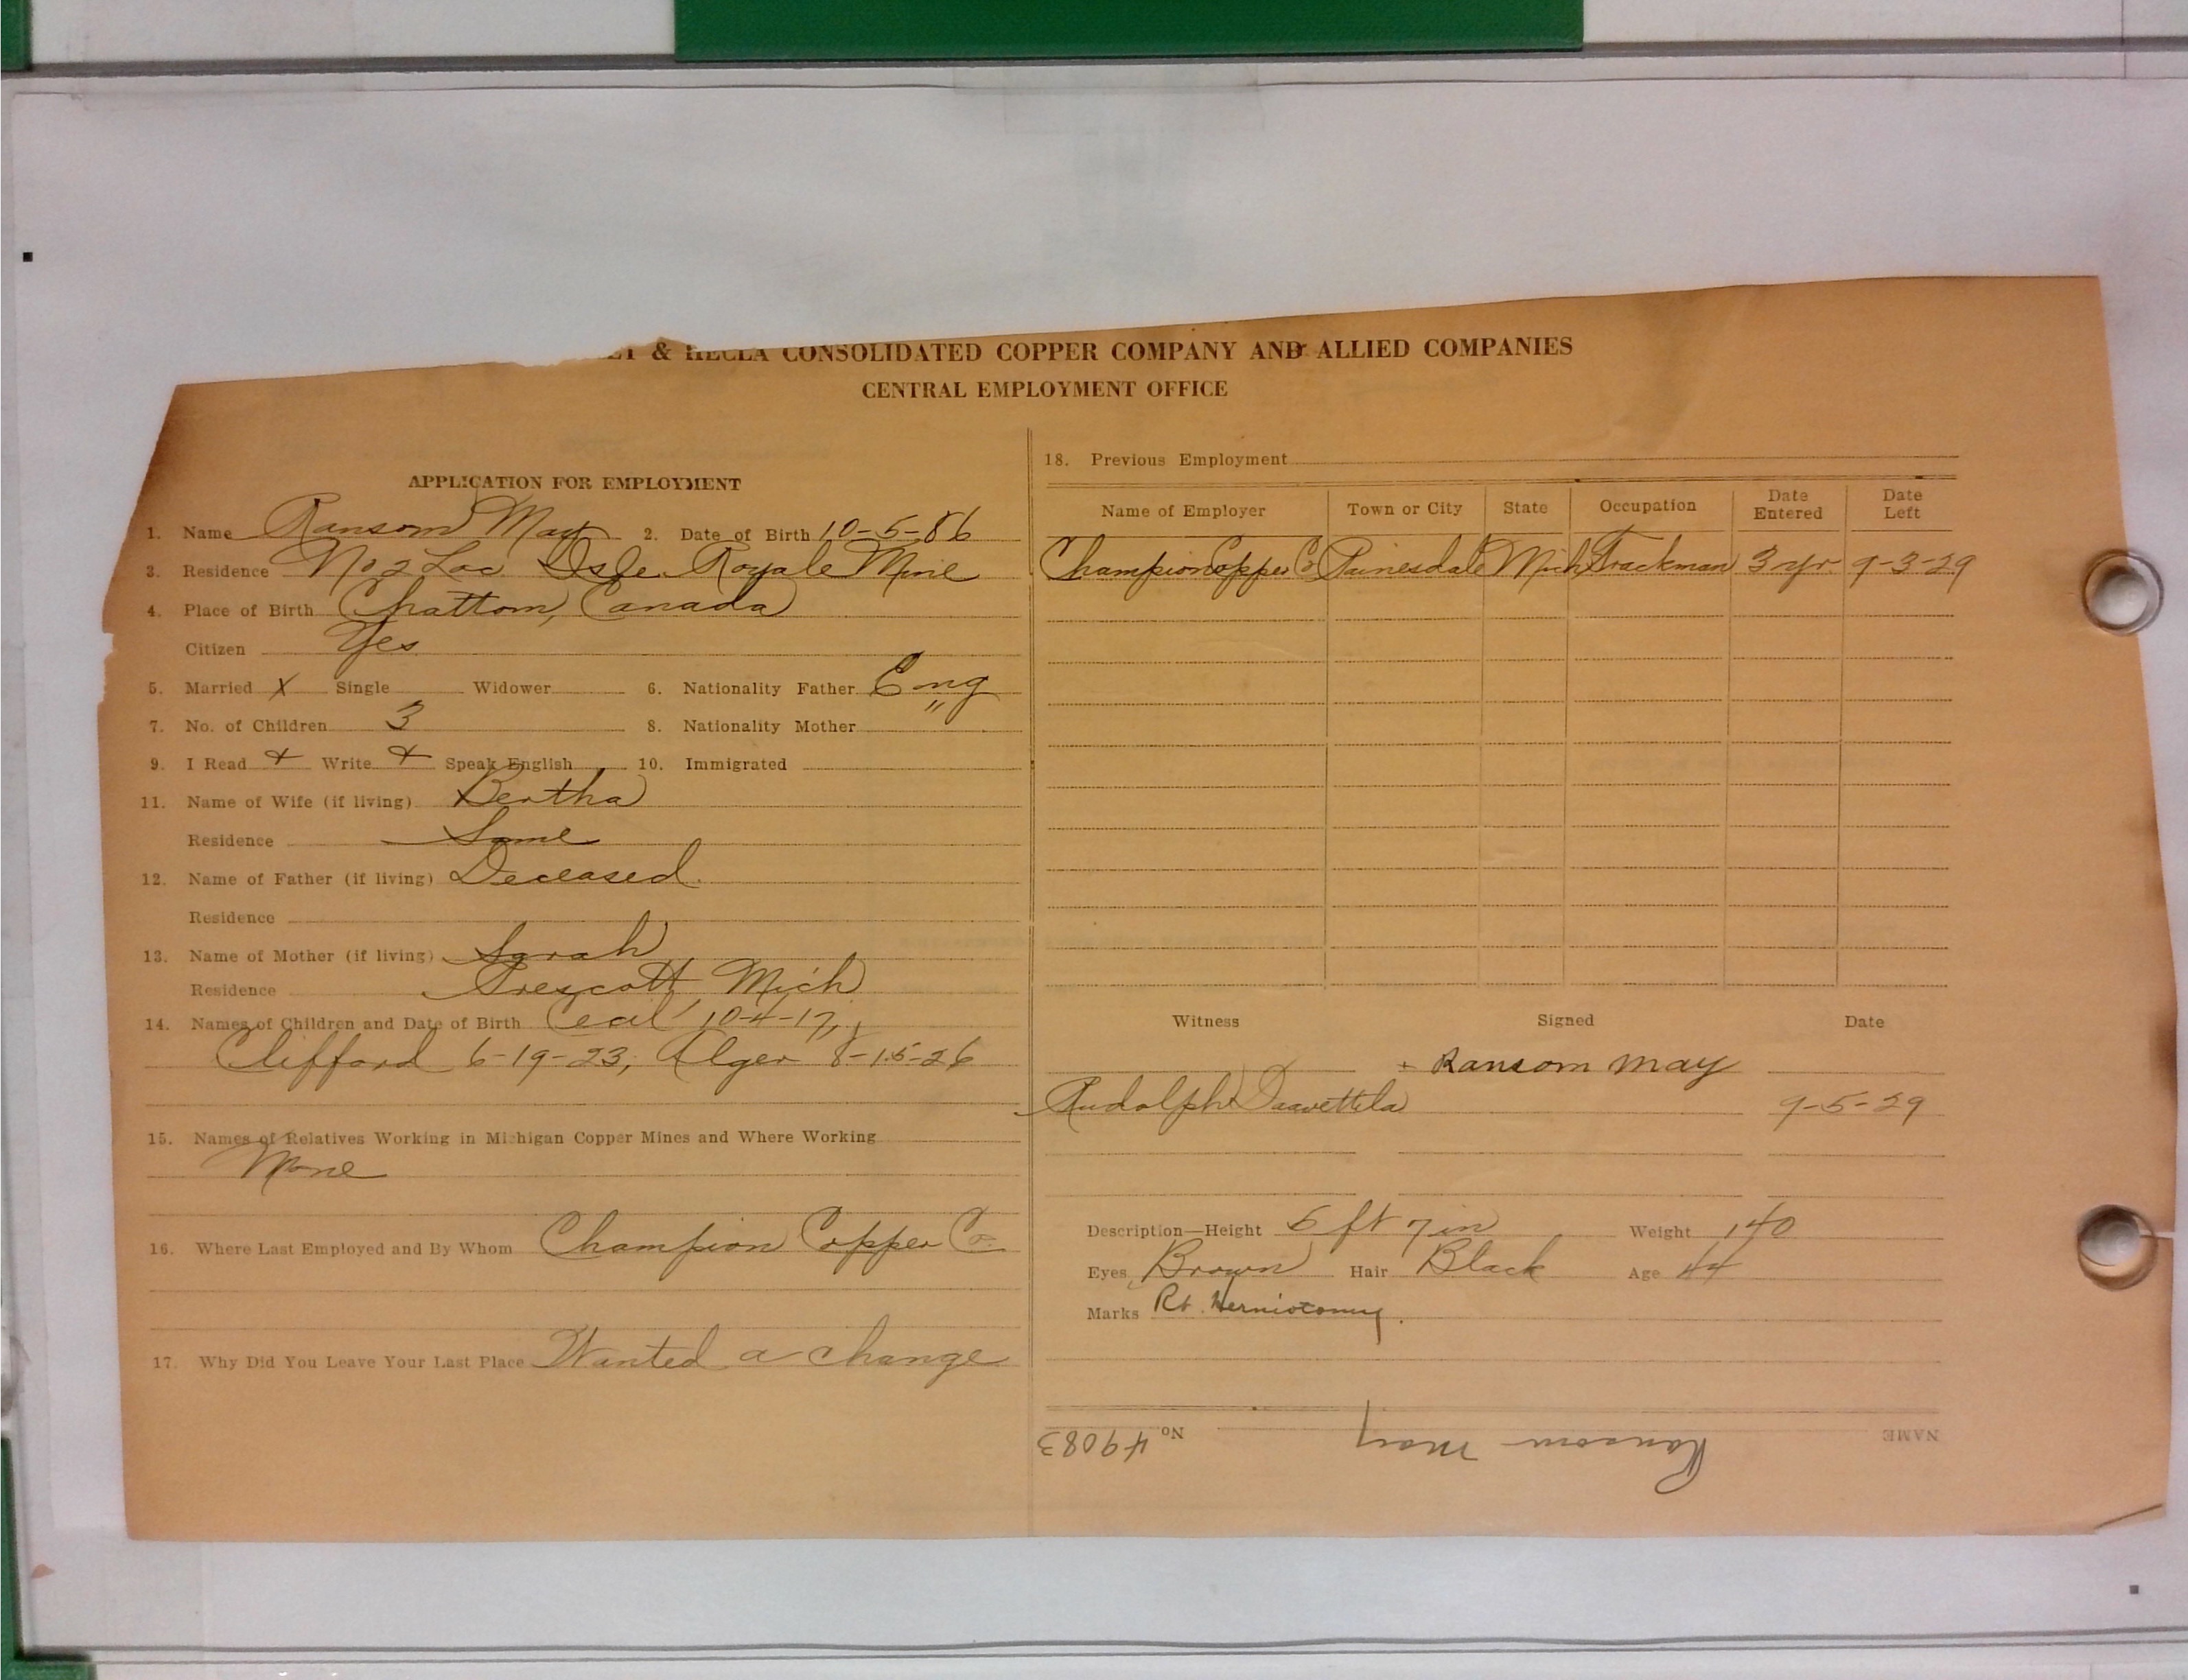 & HECLA CONSOLIDATED COPPER COMPANY AND ALLIED COMPANIES
CENTRAL EMPLOYMENT OFFICE
APPLICATION FOR EMPLOYMENT
1. Name Ransom May 2. Date of Birth 10-5-86
3. Residence No 2 Loc Isle Royale Mine
4. Place of Birth Chattom, Canada
Citizen Yes
5. Married X Single Widower 6. Nationality Father Eng
7. No. of Children 3 8. Nationality Mother "
9. I Read + Write + Speak English 10. Immigrated
11. Name of Wife (if living) Bertha
Residence Same
12. Name of Father (if living) Deceased
Residence
13. Name of Mother (if living) Sarah
Residence Prescott, Mich
14. Names of Children and Date of Birth Cecil 10-4-17,
Clifford 6-19-23, Alger 8-15-26
15. Names of Relatives Working in Michigan Copper Mines and Where Working
None
16. Where Last Employed and By Whom Champion Copper Co.
17. Why Did You Leave Your Last Place Wanted a change
18. Previous Employment
Name of Employer Town or City State Occupation Date Entered Date Left
Champion Copper Co Painesdale Mich Trackman 3 yr 9-3-29
Witness Signed Date
+ Ransom May
Rudolph 9-5-29
Description—Height 5 ft 7 in Weight 140
Eyes Brown Hair Black Age 44
Marks Rt. Herniotomy.
NAME Ransom May No. 49083